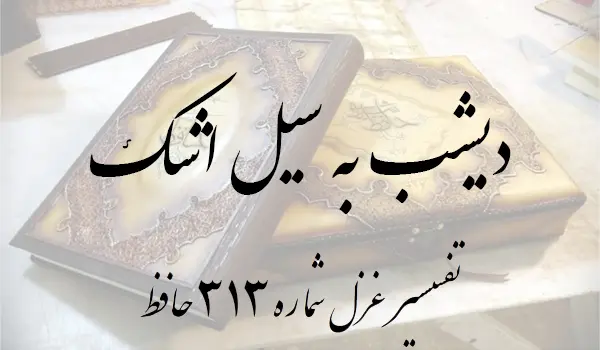 دیشب به سیل اشک
تفسیر غزل شماره ۳۱۳ حافظ